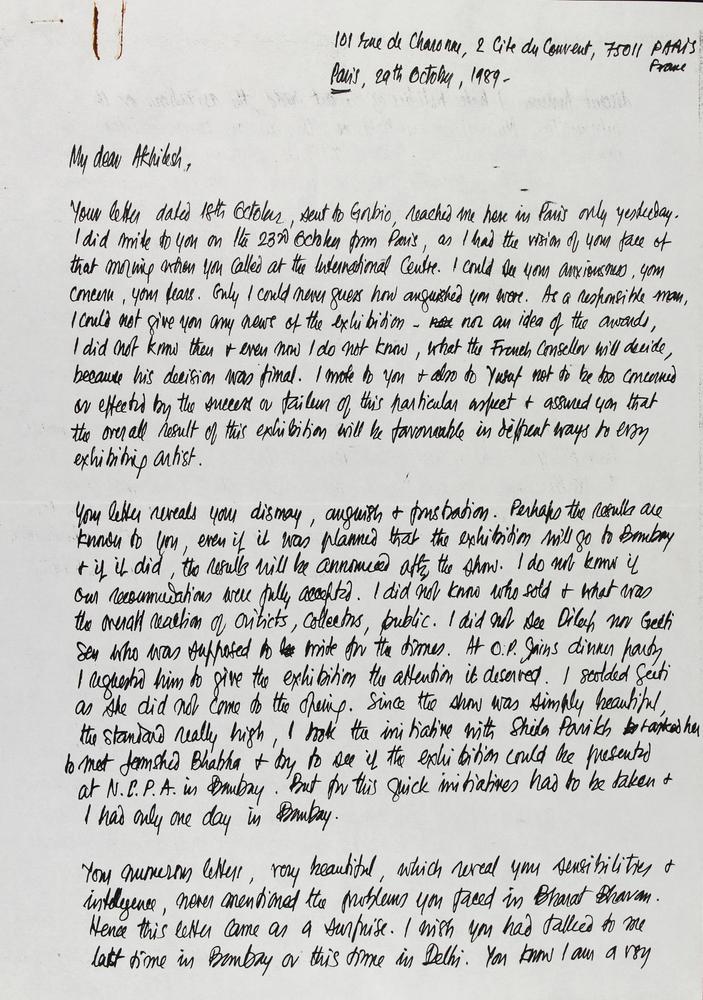 101 rue de Charonne, 2 Cite du Couvent, 75011 PARIS
France
Paris, 29th October, 1989-
My dear Akhilesh,
Your letter dated 18th October, sent to Gorbio, reached me here in Paris only yesterday.
I did write to you on the 23rd October from Paris, as I had the vision of your face of
that morning when you called at the International Centre. I could see your anxiousness, your
concern, your fears. Only I could never guess how anguished you were. As a responsible man,
I could not give you any news of the exhibition - nor an idea of the awards,
I did not know then + even now I do not know, what the French Consellor will decide,
because his decision was final. I wrote to you + also to Yusuf not to be too concerned
or effected by the success or failure of this particular aspect + assured you that
the overall result of this exhibition will be favourable in different ways to every
exhibiting artist.
Your letter reveals your dismay, anguish + frustration. Perhaps the results are
known to you, even if it was planned that the exhibition will go to Bombay
+ if it did, the results will be announced after the show. I do not know if
our recommendations were fully accepted. I did not know who sold + what was
the overall reaction of criticts, collectors, public. I did not see Dileep nor Geeti
Sen who was supposed to write for the times. At O.P. Jains dinner party
I requested him to give the exhibition the attention it deserved. I scolded Geeti
as she did not come to the opening. Since the show was simply beautiful,
the standard really high, I took the initiative with Sheila Parikh + asked her
to meet Jamshed Bhabha + try to see if the exhibition could be presented
at N.C.P.A. in Bombay. But for this quick initiatives had to be taken +
I had only one day in Bombay.
Your numerous letters, very beautiful, which reveal your sensibilities +
intelligence, never mentioned the problems you faced in Bharat Bhavan.
Hence this letter came as a surprise. I wish you had talked to me
last time in Bombay or this time in Delhi. You know I am a very